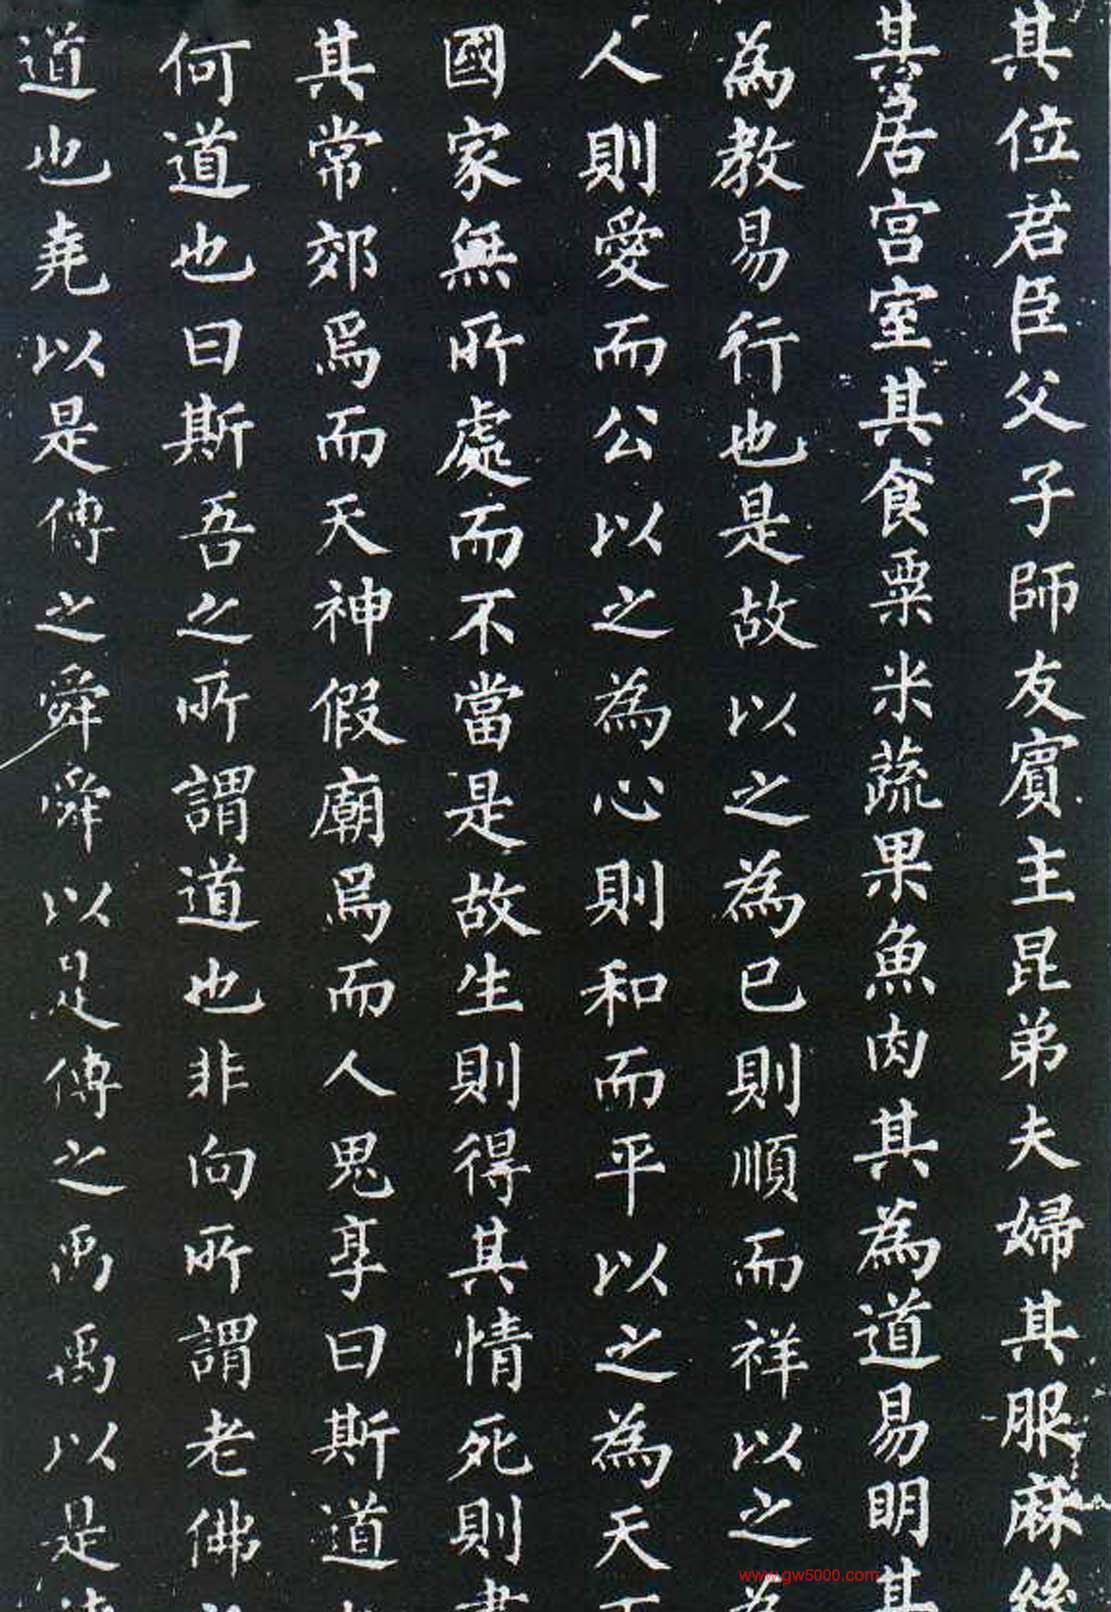 其位君臣父子師友賓主昆弟夫婦其服麻絲
其居宮室其食粟米蔬果魚肉其為道易明其
為教易行也是故以之為己則順而祥以之為
人則愛而公以之為心則和而平以之為天下
國家無所處而不當是故生則得其情死則盡
其常郊焉而天神假廟焉而人鬼享曰斯道
何道也曰斯吾之所謂道也非向所謂老佛
道也堯以是傳之舜舜以是傳之禹禹以是
www.gw5000.com